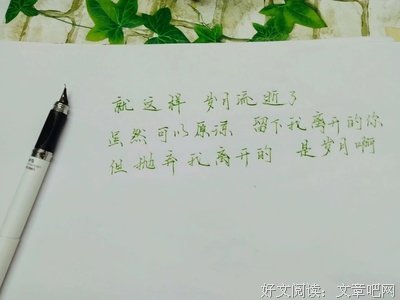 就这样 岁月流逝了
虽然可以原谅 留下我离开的你
但抛弃我离开的 是岁月啊
好文阅读：文章吧网